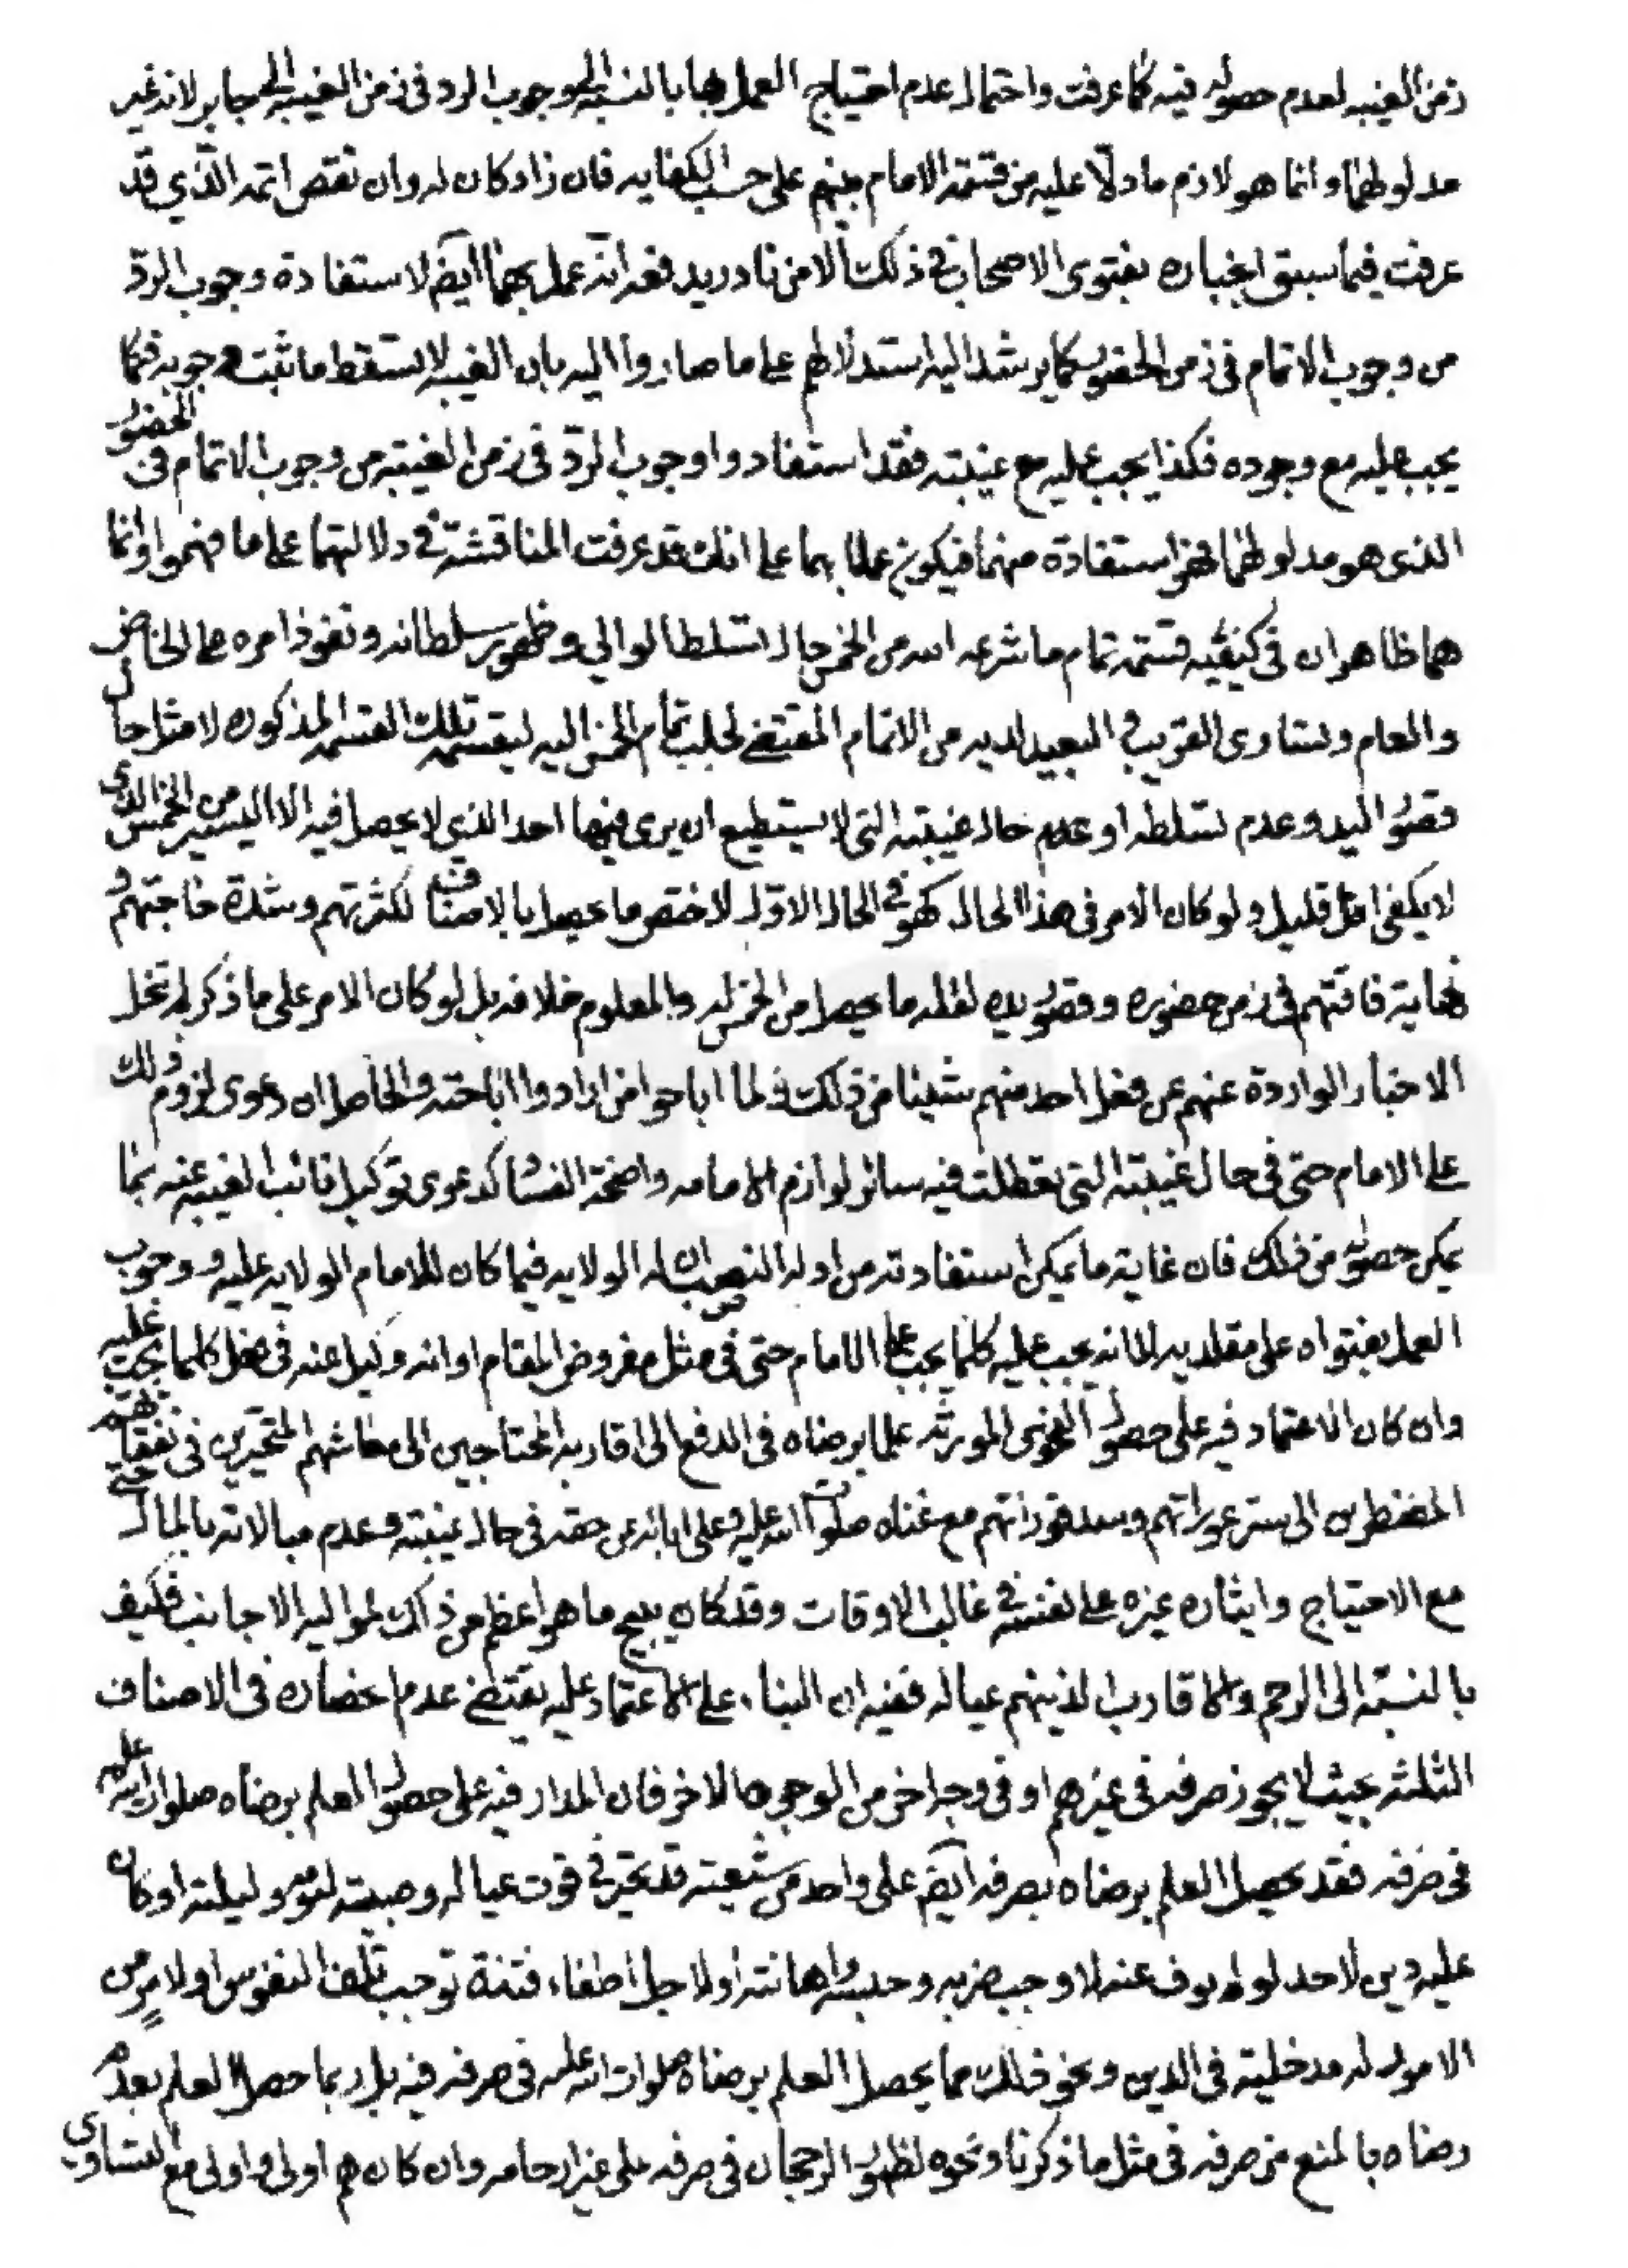 زمن الغيبه لعدم حصوله فيه كما عرفت واحتمال عدم احتياج العمل بها بالنسبة الى وجوب الرد فى زمن الغيبه الى جابر لانه غير
مدلولهما وانما هو لازم ما دلّا عليه من قسمة الامام بينهم على حسب الكفايه فان زاد كان له وان نقص اتمه الّذي قد
عرفت فيما سبق انجباره بفتوى الاصحاب في ذلك الا من نادر يدفعه انّه عمل بهما ايضا لاستفادة وجوب الردّ
من وجوب الاتمام فى زمن الحضور كما يرشد اليه استدلالهم على ما صاروا اليه بان الغيبه لا تسقط ما ثبت وجوبه فكما
يجب عليه مع وجوده فكذا يجب عليه مع غيبته فقد استفادوا وجوب الردّ فى زمن الغيبة من وجوب الاتمام فى الحضور
الذى هو مدلولهما فهو استفادة منهما فيكون عملا بهما على انك قد عرفت المناقشة في دلالتهما على ما فهموا وانما
هما ظاهران في كيفيه قسمة تمام ما شرعه الله من الخمس حال تسلط الوالي وظهور سلطانه ونفوذ امره على الخاص
والعام وتساوى القريب و البعيد لديه من الاتمام المقتضي لجلب تمام الخمس اليه ليقسمه تلك القسمه المذكوره لا مثل حال
قصور اليد وعدم تسلطه او عدم حال غيبته التى لا يستطيع ان يرى فيها احد الذي لا يحصل فيه الا اليسير من الخمس الذي
لا يكفى اقل قليل ولو كان الامر فى هذا الحال كهو في الحال الاول لاختص ما يحصل بالاصناف لكثرتهم وشدة حاجتهم و
نهاية فاقتهم في زمن حضوره وقصور يده لقله ما يحصل من الخمس له والمعلوم خلافه بل لو كان الامر على ما ذكر لم تخل
الاخبار الواردة عنهم عن فعل احد منهم شيئا من ذلك ولما اباحوا من ارادوا اباحته والحاصل ان دعوى لزوم ذلك
على الامام حتى فى حال غيبته التى تعطلت فيه سائر لوازم الامامه واضحة الفساد كدعوى توكيل نائب الغيبه عنه بما
يمكن حصوله من ذلك فان غاية ما يمكن استفادته من ادله النصب ان له الولايه فيما كان للامام الولايه عليه ووجوب
العمل بفتواه على مقلديه لا انه يجب عليه كلما يجب على الامام حتى في مثل مفروض المقام او انه وكيل عنه فى فعل كلما يجب عليه
وان كان الاعتماد فيه على حصول الفحوى المورثه علما برضاه فى الدفع الى اقاربه المحتاجين الى معاشهم المتحيرين فى نفقاتهم
المضطرين الى ستر عوراتهم وسد فوراتهم مع غناه صلوات الله عليه وعلى ابائه عن حقه فى حال غيبته وعدم مبالاته بالمال حتى
مع الاحتياج وايثاره غيره على نفسه في غالب الاوقات وقد كان يبيح ما هو اعظم من ذلك لمواليه الاجانب فكيف
بالنسبة الى الرحم والاقارب الذينهم عياله ففيه ان البناء على الاعتماد عليه يقتضي عدم انحصاره فى الاصناف
الثلثه بحيث لا يجوز صرفه فى غيرهم او فى وجه اخر من الوجوه الاخر فان المدار فيه على حصول العلم برضاه صلوات الله عليه
فى صرفه فقد يحصل العلم برضاه بصرفه ايضا على واحد من شيعته قد تحير في قوت عياله وصبيته ليومه وليلته او كان
عليه دين لاحد لو لم يوف عنه لاوجب ضربه وحبسه واهانته او لاجل اطفاء فتنة توجب تلف النفوس او لامر من
الامور له مدخلية فى الدين ونحو ذلك مما يحصل العلم برضاه صلوات الله عليه فى صرفه فيه بل ربما حصل العلم بعدم
رضاه بالمنع من صرفه فى مثل ما ذكرنا ونحوه لظهور الرجحان فى صرفه على غير ارحامه وان كان هم اولى واولى مع التساوي